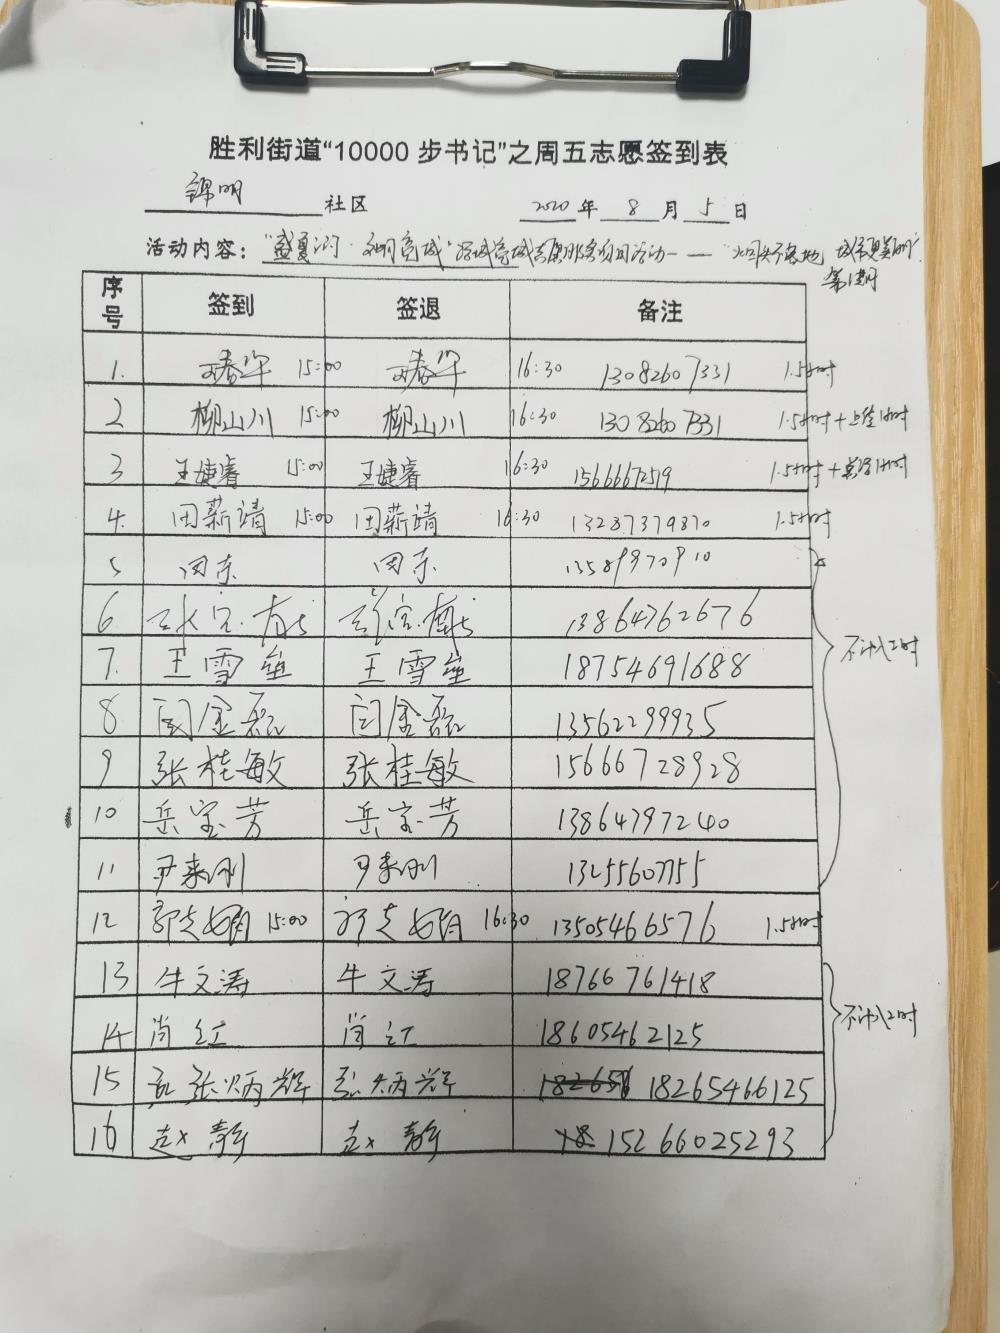 胜利街道“10000 步书记”之周五志愿签到表
锦明 社区 2020 年 8 月 5 日
活动内容：“盛夏 · 文明 城”
第1期
序号 签到 签退 备注
1. 春华 15:00 春华 16:30 13082607331 1.5小时
2 柳山川 15:00 柳山川 16:30 13082607331 1.5小时+ 1小时
3 王婕睿 15:00 王婕睿 16:30 15666672519 1.5小时+ 1小时
4. 田薪靖 15:00 田薪靖 16:30 13287379870 1.5小时
5 田东 田东 13589970910
6. 13864762676
7. 王雪垒 王雪垒 18754691688
8 闫金磊 闫金磊 13562299935
9 张桂敏 张桂敏 15666728928
10 岳宝芳 岳宝芳 13864797240
11 尹来刚 尹来刚 13255607755
不计入工时
12 郭志娟 15:00 郭志娟 16:30 13505466576 1.5小时
13 牛文涛 牛文涛 18766761418
14 肖红 肖红 18605462125
15 张炳辉 张炳辉 18265466125
16 赵静 赵静 15266025293
不计入工时